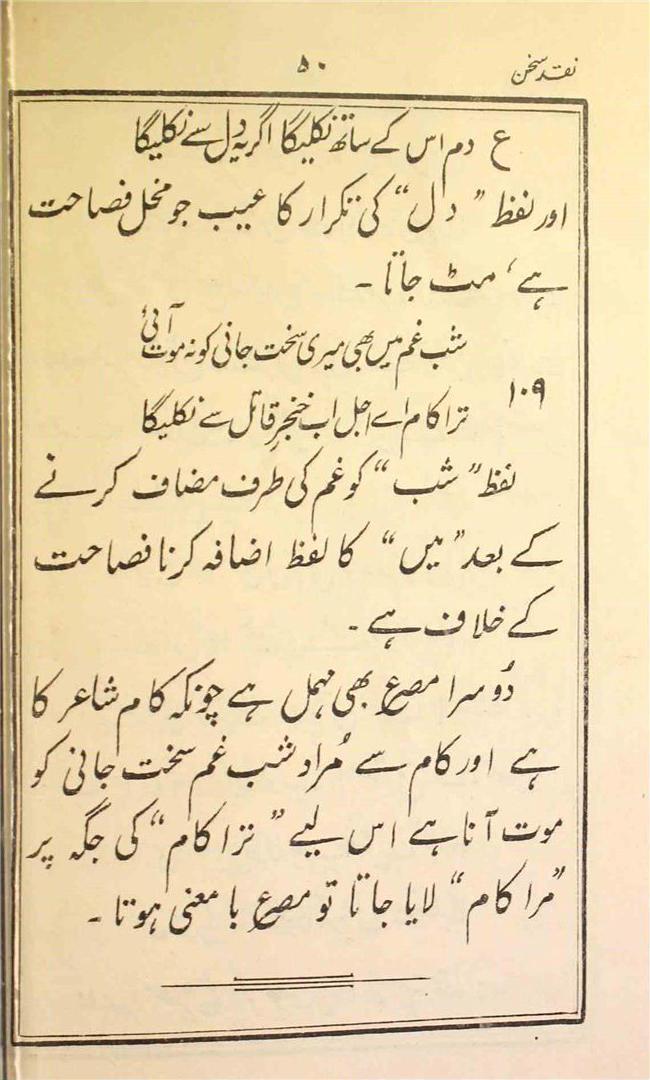 نقد سخن
۵۰
ع دم اس کے ساتھ نکلیگا اگر یہ دل سے نکلیگا
اور لفظ "دل" کی تکرار کا عیب جو مخل فصاحت
ہے، مٹ جاتا۔
شب غم میں بھی میری سخت جانی کو نہ موت آئی
۱۰۹
ترا کام اے اجل اب خنجرِ قاتل سے نکلیگا
لفظ "شب" کو غم کی طرف مضاف کرنے
کے بعد "میں" کا لفظ اضافہ کرنا فصاحت
کے خلاف ہے۔
دُوسرا مصرع بھی مہمل ہے چونکہ کام شاعر کا
ہے اور کام سے مُراد شب غم سخت جانی کو
موت آنا ہے اس لیے "ترا کام" کی جگہ پر
"مرا کام" لایا جاتا تو مصرع با معنی ہوتا۔